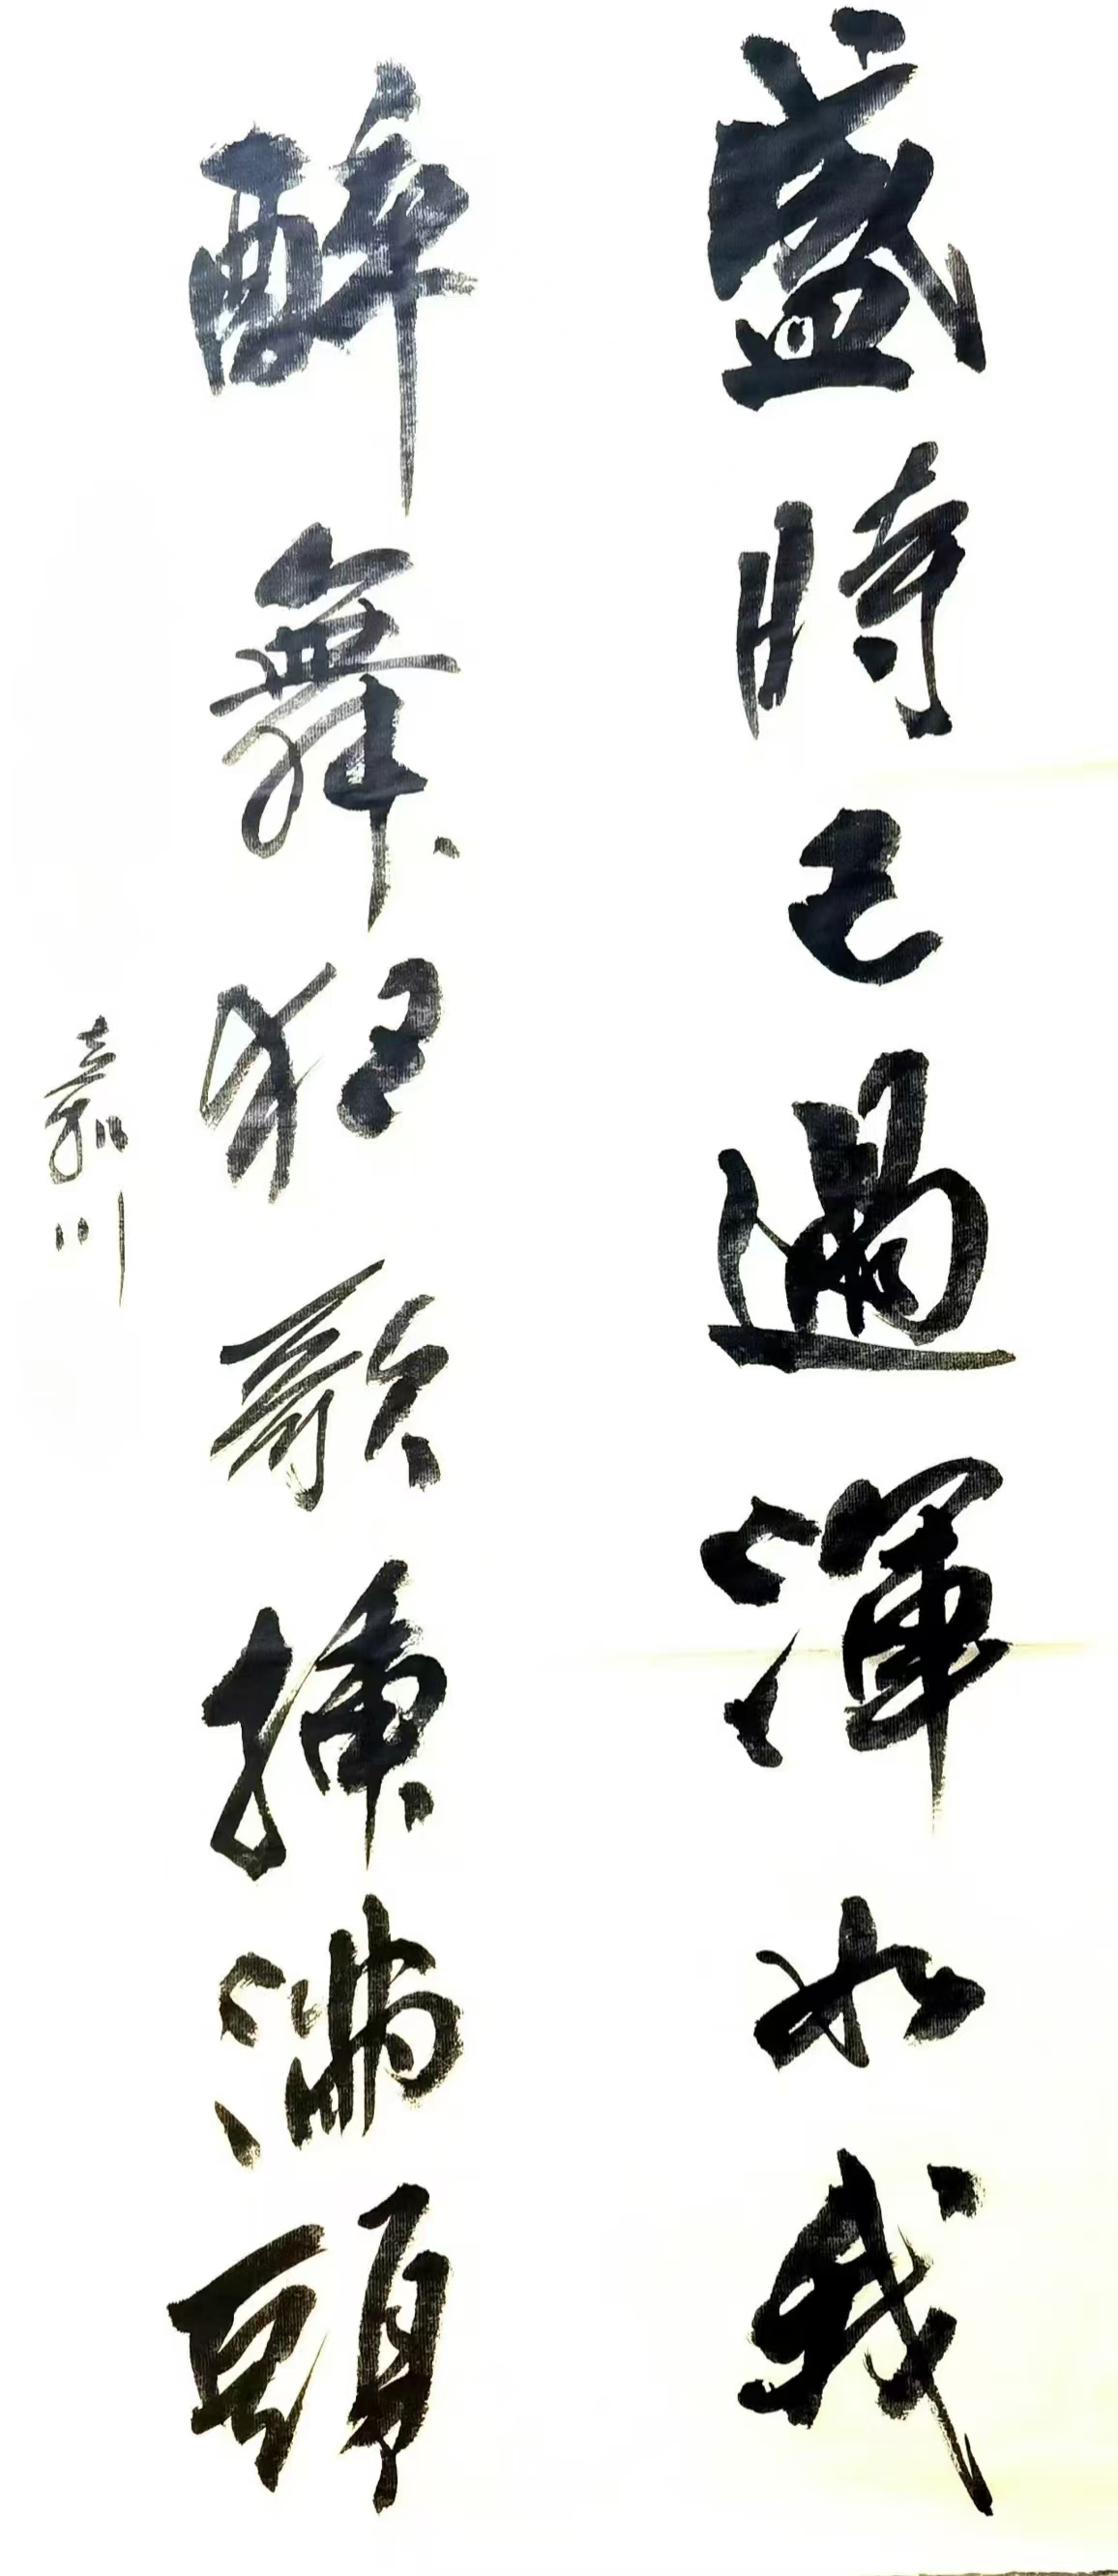 盛時已過渾如我
醉舞狂歌插滿頭
嘉川